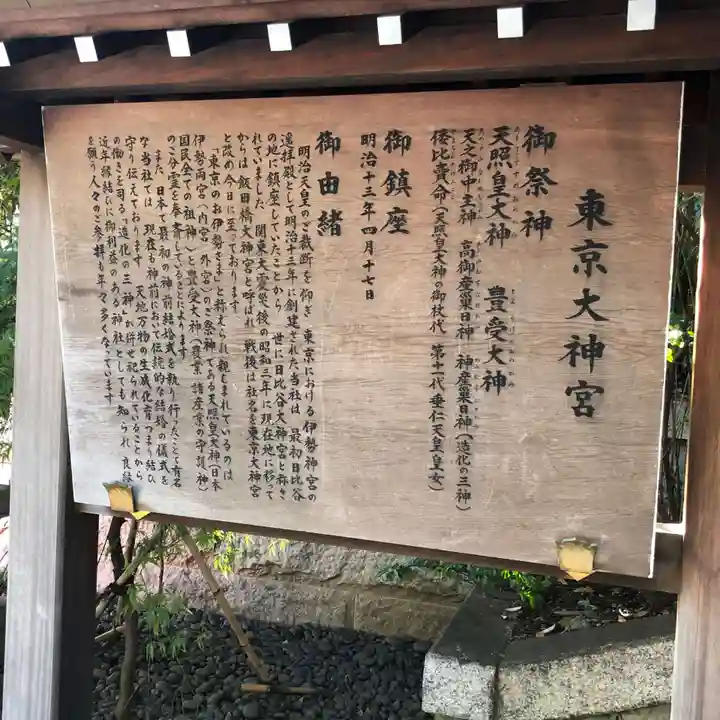 東京大神宮
御祭神
天照皇大神　豊受大神
天之御中主神　高御産巣日神　神産巣日神(造化の三神)
倭比賣命(天照皇大神の御杖代　第十一代垂仁天皇皇女)
御鎮座
明治十三年四月十七日
御由緒
明治天皇のご裁断を仰ぎ　東京における伊勢神宮の
遥拝殿として明治十三年に創建された当社は　最初日比谷
の地に鎮座していたことから　世に日比谷大神宮と称さ
れていました　関東大震災後の昭和三年に現在地に移って
からは飯田橋大神宮と呼ばれ　戦後は社名を東京大神宮
と改め今日に至っております
「東京のお伊勢さま」と称えられ親しまれているのは
伊勢両宮(内宮　外宮)のご祭神である天照皇大神(日本
国民全ての祖神)と豊受大神(農業　諸産業の守護神)
のご分霊を奉斎していることによります
また　日本で最初の神前結婚式を執り行ったことで有名
な当社では　現在も神前において伝統的な結婚の儀式を
守り伝えております　天地万物の生成化育つまり結び
の働きを司る「造化の三神」が併せ祀られていることから
近年縁結びに御利益のある神社としても知られ　良縁
を願う人々の参拝も年々多くなっています